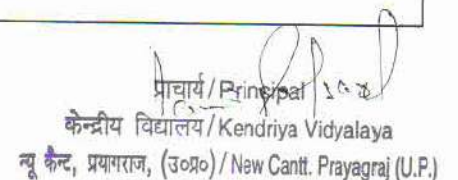 प्राचार्य / Principal
केन्द्रीय विद्यालय / Kendriya Vidyalaya
न्यू कैन्ट, प्रयागराज, (उ०प्र०) / New Cantt. Prayagraj (U.P.)